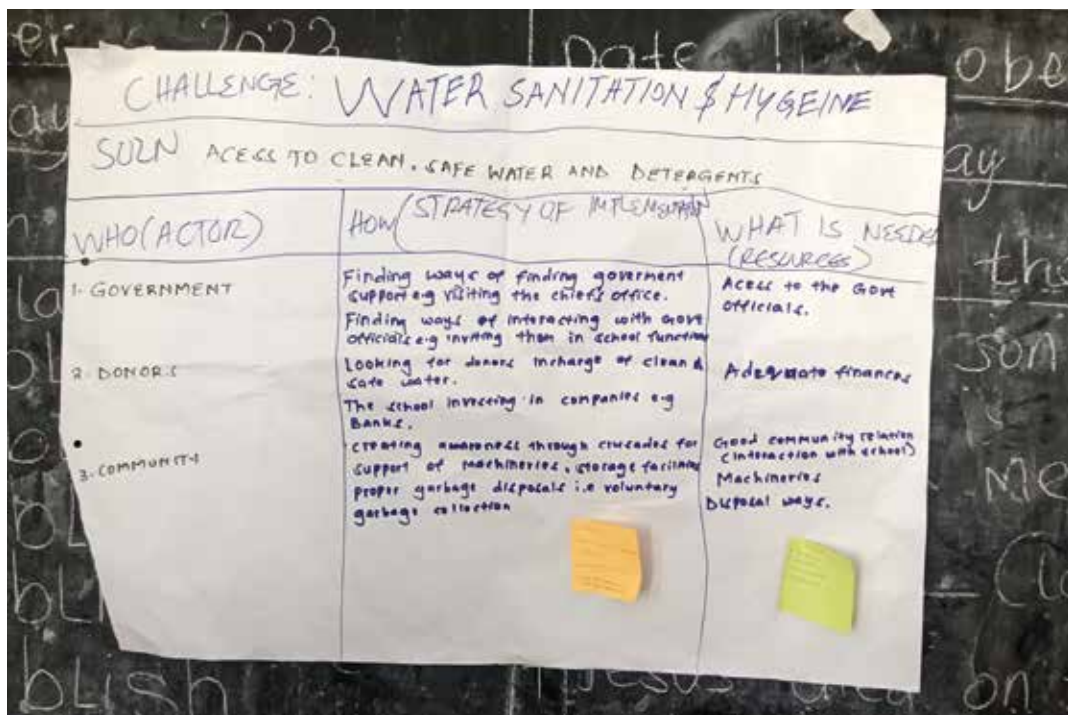 2023
Date
CHALLENGE: WATER SANITATION & HYGEINE
SOLN ACESS TO CLEAN, SAFE WATER AND DETERGENTS
WHO (ACTOR)
HOW (STRATEGY OF
WHAT IS NEEDED
(RESOURCES)
1. GOVERNMENT
Finding ways of finding goverment
support e.g visiting the chief's office.
Finding ways of interacting with Govt
officials e.g inviting them in school function
Acess to the Govt
officials.
2. DONORS
Looking for donors incharge of clean &
safe water.
The school investing in companies e.g
Banks.
Adequate finances
3. COMMUNITY
creating awareness through crusades for
support of machineries, storage facilities
proper garbage disposals i.e voluntary
garbage collection
Good community relation
(interaction with school)
Machineries
Disposal ways.
blish
Jesus died on